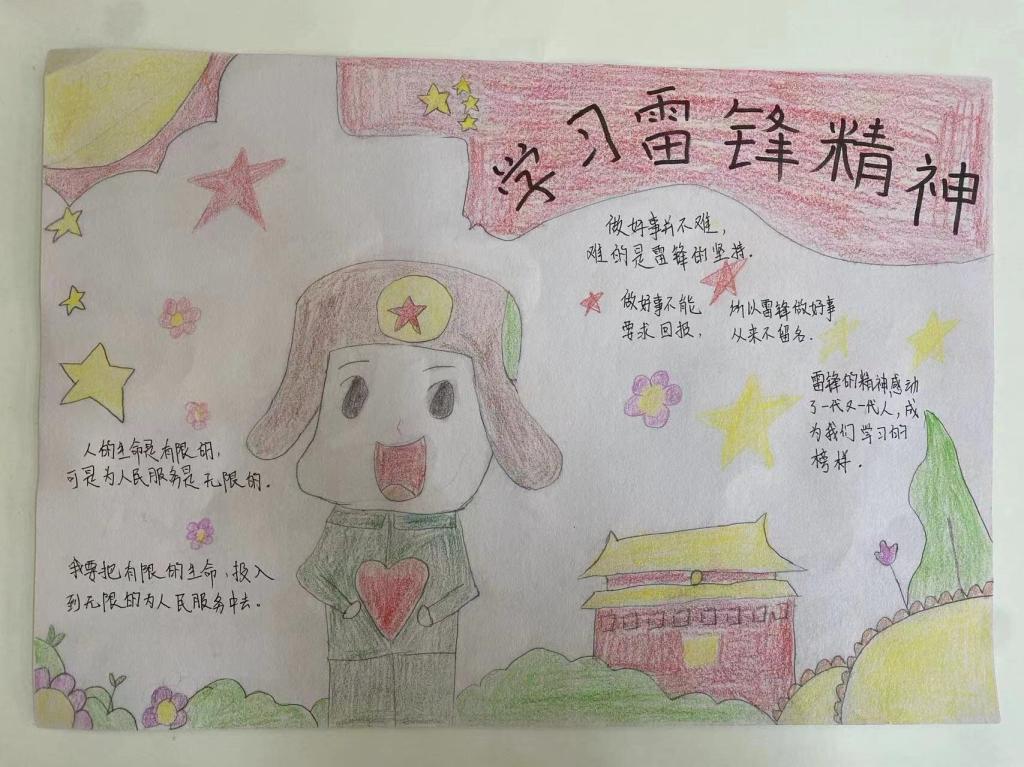 学习雷锋精神
做好事并不难，
难的是雷锋的坚持.
做好事不能
要求回报，
所以雷锋做好事
从来不留名.
雷锋的精神感动
了一代又一代人，成
为我们学习的
榜样.
人的生命是有限的，
可是为人民服务是无限的.
我要把有限的生命，投入
到无限的为人民服务中去.